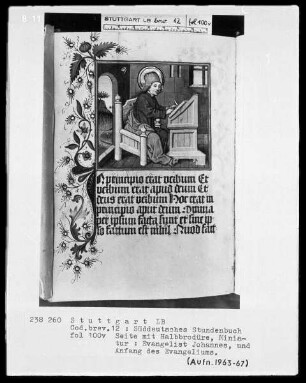 STUTTGART LB brev 12 fol 100v
N principio erat verbum Et
verbum erat apud deum Et
deus erat verbum Hoc erat in
principio aput deum Omnia
per ipsum facta sunt et sine ip
so factum est nihil Quod fact
238 260 Stuttgart LB
Cod.brev.12 : Süddeutsches Stundenbuch
fol 100v Seite mit Halbbordüre, Minia-
tur : Evangelist Johannes, und
Anfang des Evangeliums.
(Aufn.1963-67)